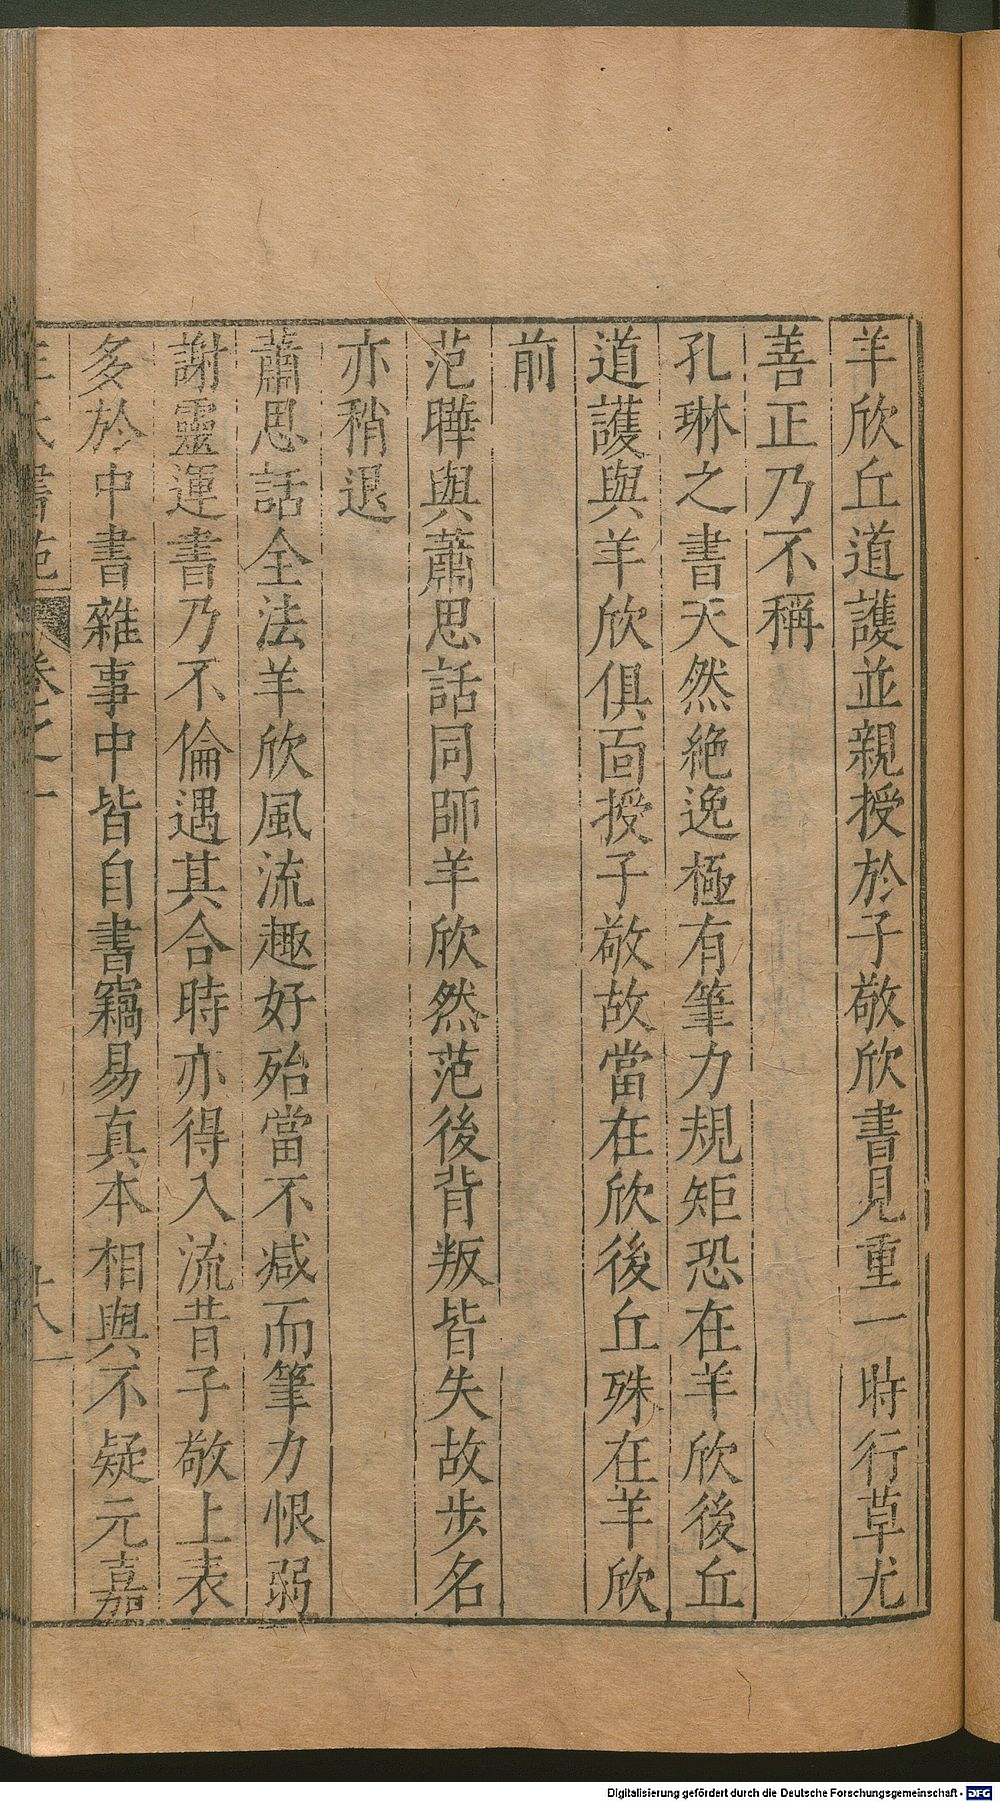 羊欣丘道護並親授於子敬欣書見重一時行草尤
善正乃不稱
孔琳之書天然絶逸極有筆力規矩恐在羊欣後丘
道護與羊欣俱面授子敬故當在欣後丘殊在羊欣
前
范曄與蕭思話同師羊欣然范後背叛皆失故步名
亦稍退
蕭思話全法羊欣風流趣好殆當不减而筆力恨弱
謝靈運書乃不倫遇其合時亦得入流昔子敬上表
多於中書雜事中皆自書竊易真本相與不疑元嘉
王氏書苑 卷之一
Digitalisierung gefördert durch die Deutsche Forschungsgemeinschaft - DFG